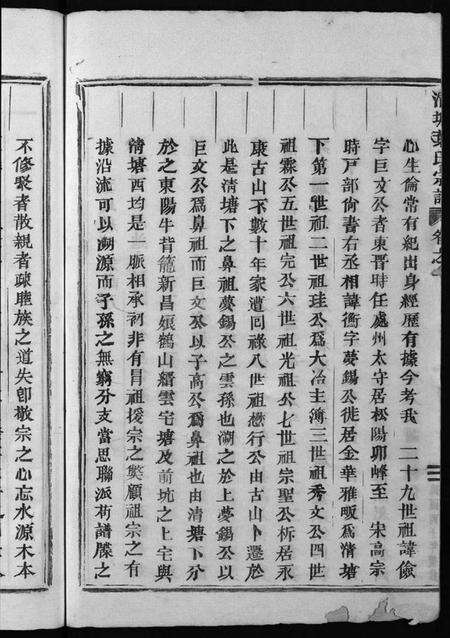 清塘葉氏宗譜 卷之
心生倫常有紀出身經歷有據今考我 二十九世祖諱儉
字巨文公者東晋時任處州太守居松陽卯峰至 宋高宗
時戸部尚書右丞相諱衡字夢錫公徙居金華雅畈爲清塘
下第一世祖二世祖珪公爲大冶主簿三世祖秀文公四世
祖霖公五世祖完公六世祖光祖公七世祖宗聖公柝居永
康古山不數十年家遭囘祿八世祖懋行公由古山卜遷於
此是清塘下之鼻祖夢錫公之雲孫也溯之於上夢錫公以
巨文公爲鼻祖而巨文公以子高公爲鼻祖也由清塘卜分
於之東陽牛背籠新昌娘鶴山縉雲宅塘及前坑之上宅與
清塘西均是一脈相承初非有冐祖援宗之獘顧祖宗之有
據沿流可以溯源而子孫之無窮分支當思聯派茍譜牒之
不修聚者散親者疎聯族之道失卽敬宗之心忘水源木本